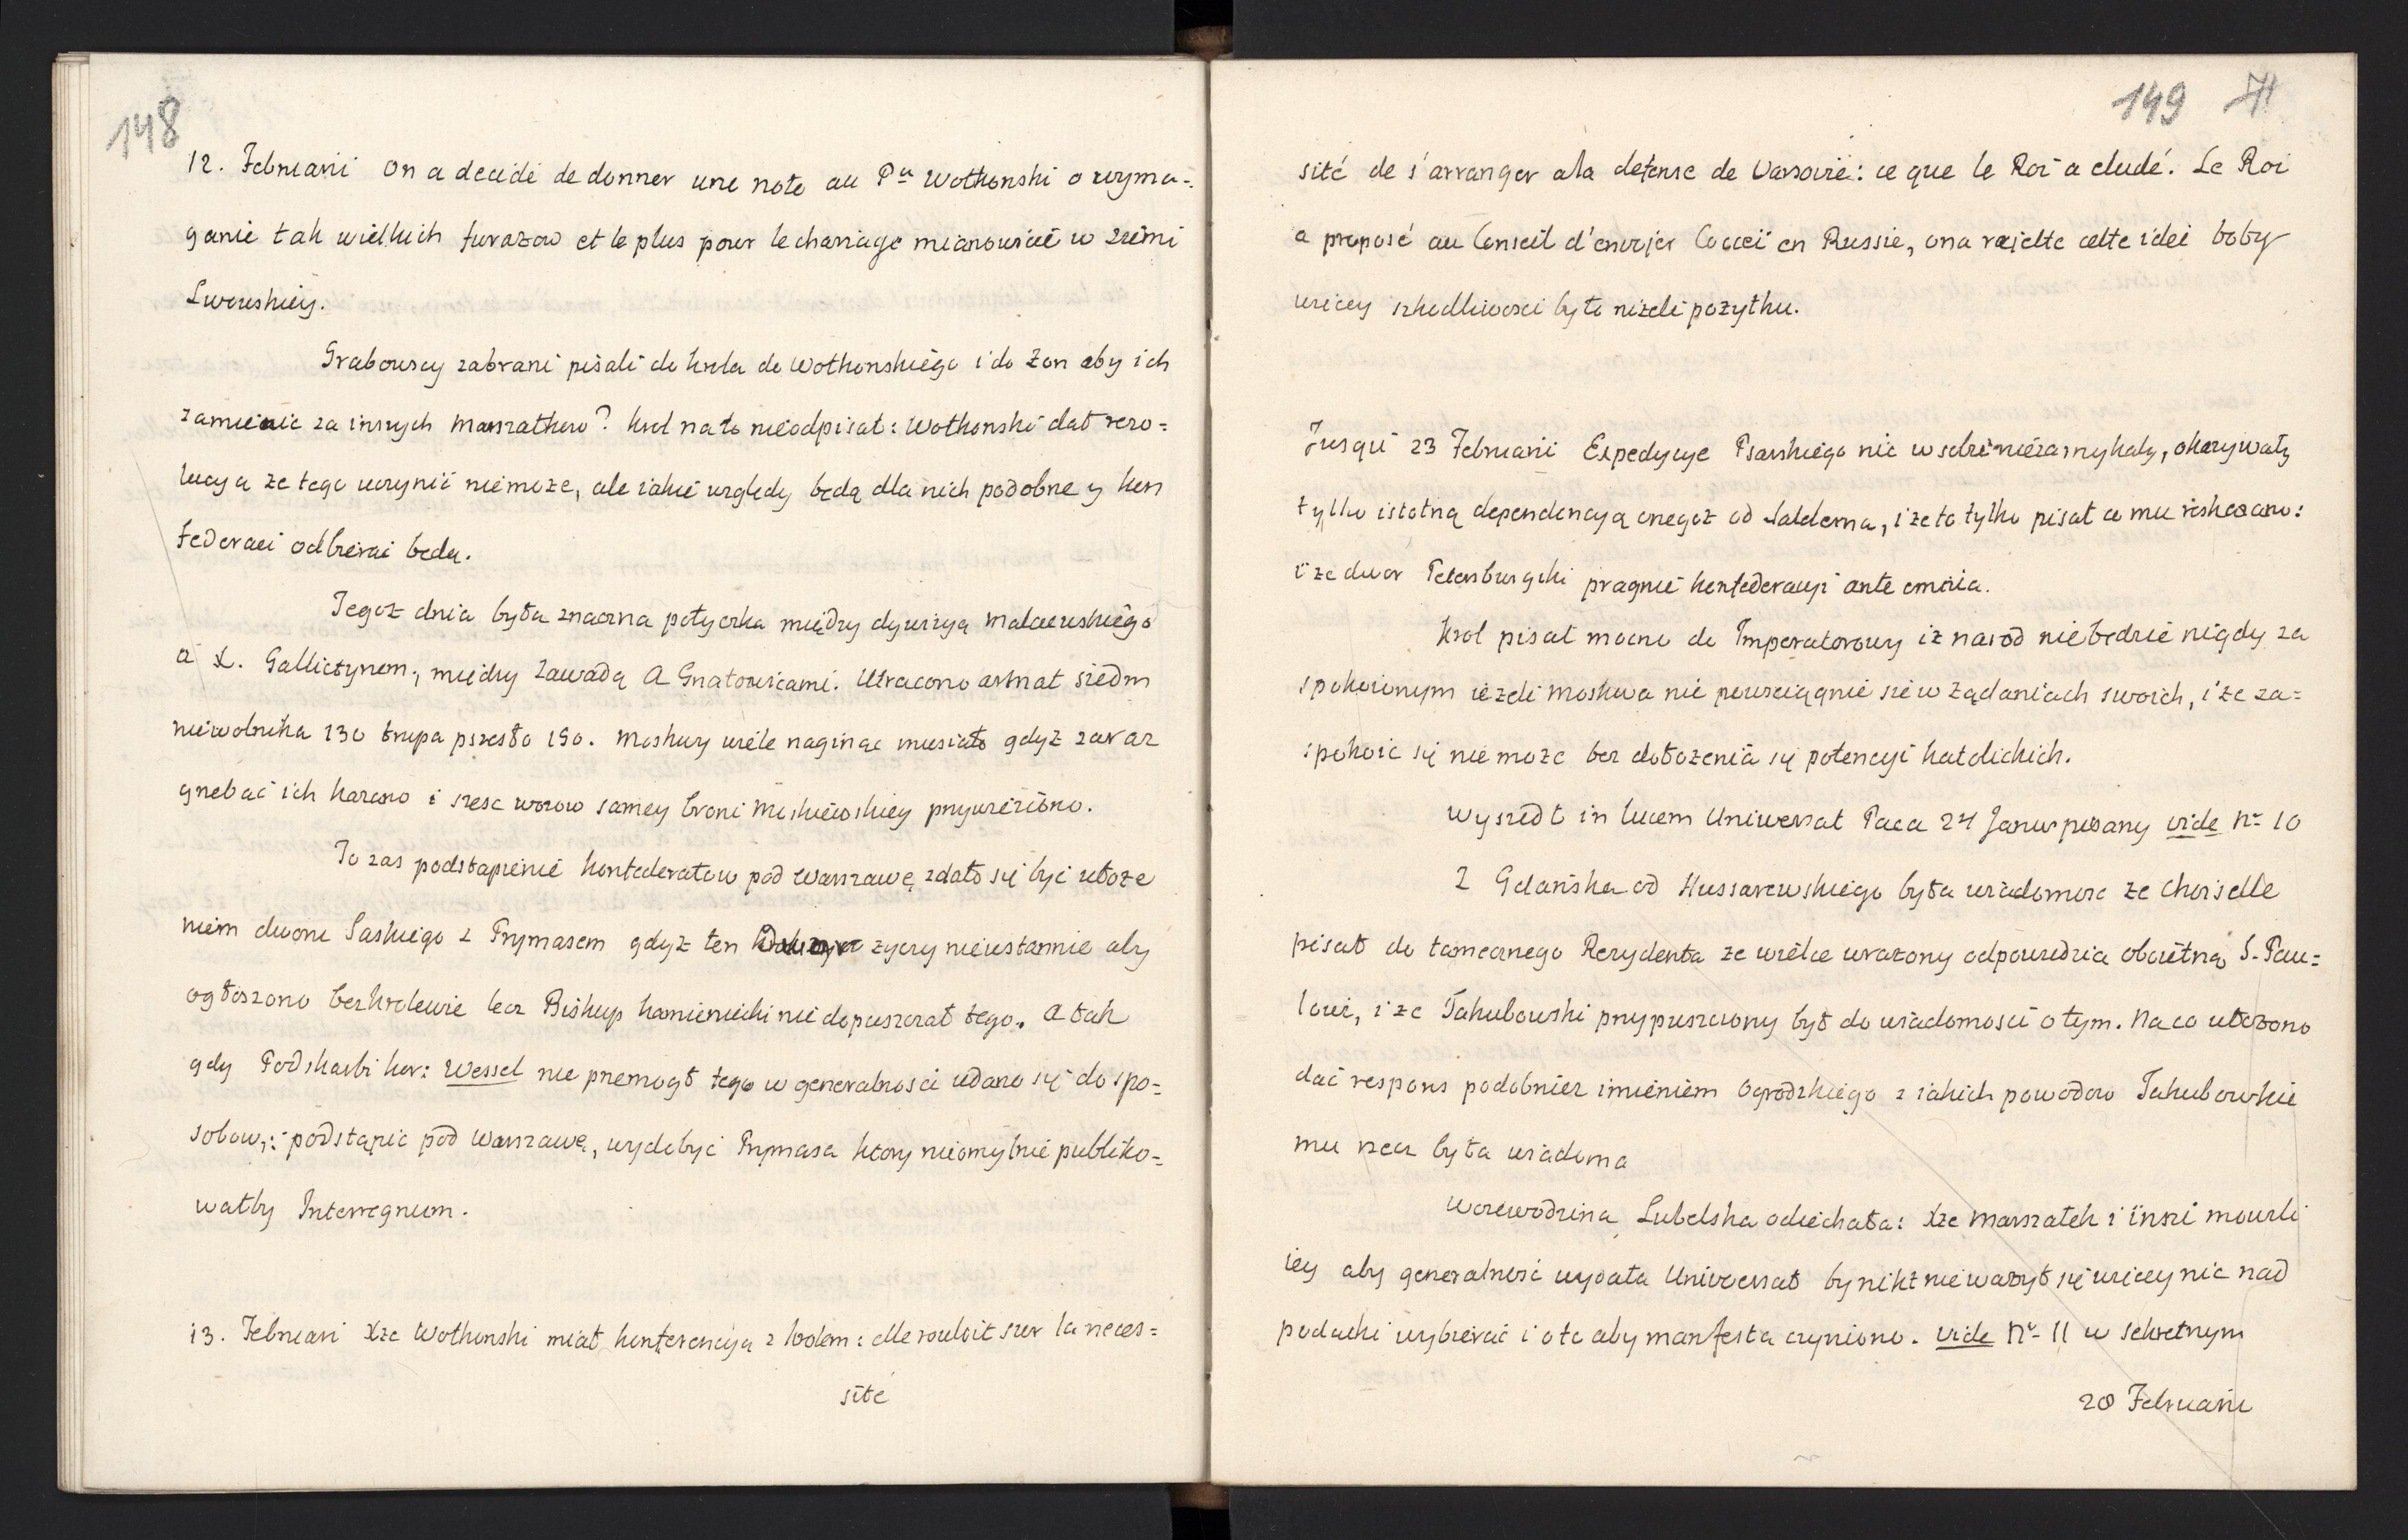 148
12. Februarii On a decidé de donner une note au Pce Wołkonski o wyma-
ganie tak wielkich furazow et le plus pour le chariage mianowicie w Ziemi
Lwowskiey.
Grabowscy zabrani pisali do krola do Wołkonskiego i do Zon aby ich
zamienic za innych Marszałkow? krol na to nieodpisał: Wołkonski dał rezo=
lucyą ze tego uczynić niemoze, ale iakie względy będą dla nich podobne y kon
federaci odbierać będą.
Tegoz dnia była znaczna potyczka między dywizyą Malczewskiego
a X. Gallictynem, między Zawadą a Gnatowicami. Utracono armat siedm
niewolnika 130 trupa przeszło 150. Moskwy wiele naginąc musiało gdyz zaraz
grzebać ich kazano i szesc wozow samey broni Moskiewskiey przywieziono.
To zas podstąpienie konfederatow pod Warszawę zdało się być ułoze
niem dworu Saskiego z Prymasem gdyz ten zyczy nieustannie aby
ogłoszono bezkrolewie lecz Biskup kamieniecki nie dopuszczał tego. a tak
gdy Podskarbi kor: Wessel nie przemogł tego w generalnosci udano się do spo=
sobow: podstąpic pod Warszawę, wydobyć Prymasa ktory nieomylnie publiko=
wałby Interregnum.
13. Februari Xze Wołkonski miał konferencyą z krolem: elle rouloit sur la neces=
sité
149
sité de s'arranger a la defense de Varsovie: ce que le Roi a eludé. Le Roi
a proposé au Conseil d'envojer Coccei en Russie, on a rejetté cette idée boby
wiecey szkodliwosci było nizeli pozytku.
Jusqu' 23 Februarii Expedycye Psarskiego nic w sobie niezamykały, okazywały
tylko istotną dependencyą onegoz od Salderna, i ze to tylko pisał co mu roskazano:
i ze dwor Petersburgski pragnie konfederacyi ante omnia.
Krol pisał mocno do Imperatorowy iz narod niebędzie nigdy za
spokoionym iezeli Moskwa nie powsciągnie się w ządaniach swoich, i ze za=
spokoic się nie moze bez dołozenia się potencyi katolickich.
Wyszedł in lucem Uniwersał Paca 24 Januar pisany vide No 10
Z Gdańska od Hussarzewskiego była wiadomosc ze Choiselle
pisał do tamecznego Rezydenta ze wielce urazony odpowiedzią oboiętną S. Pau=
lowi, i ze Jakubowski przypuszczony był do wiadomosci o tym. Na co ułozono
dać respons podobniez imieniem Ogrodzkiego z iakich powodow Jakubowskie
mu rzecz była wiadoma
Woiewodzina Lubelska odiechała: Xze Marszałek i inszi mowili
iey aby generalność wydała Uniwersał by nikt nie wazył się wiecey nic nad
podatki wybierać i o to aby manifesta czyniono. vide No 11 w sekretnym
20 Februarii